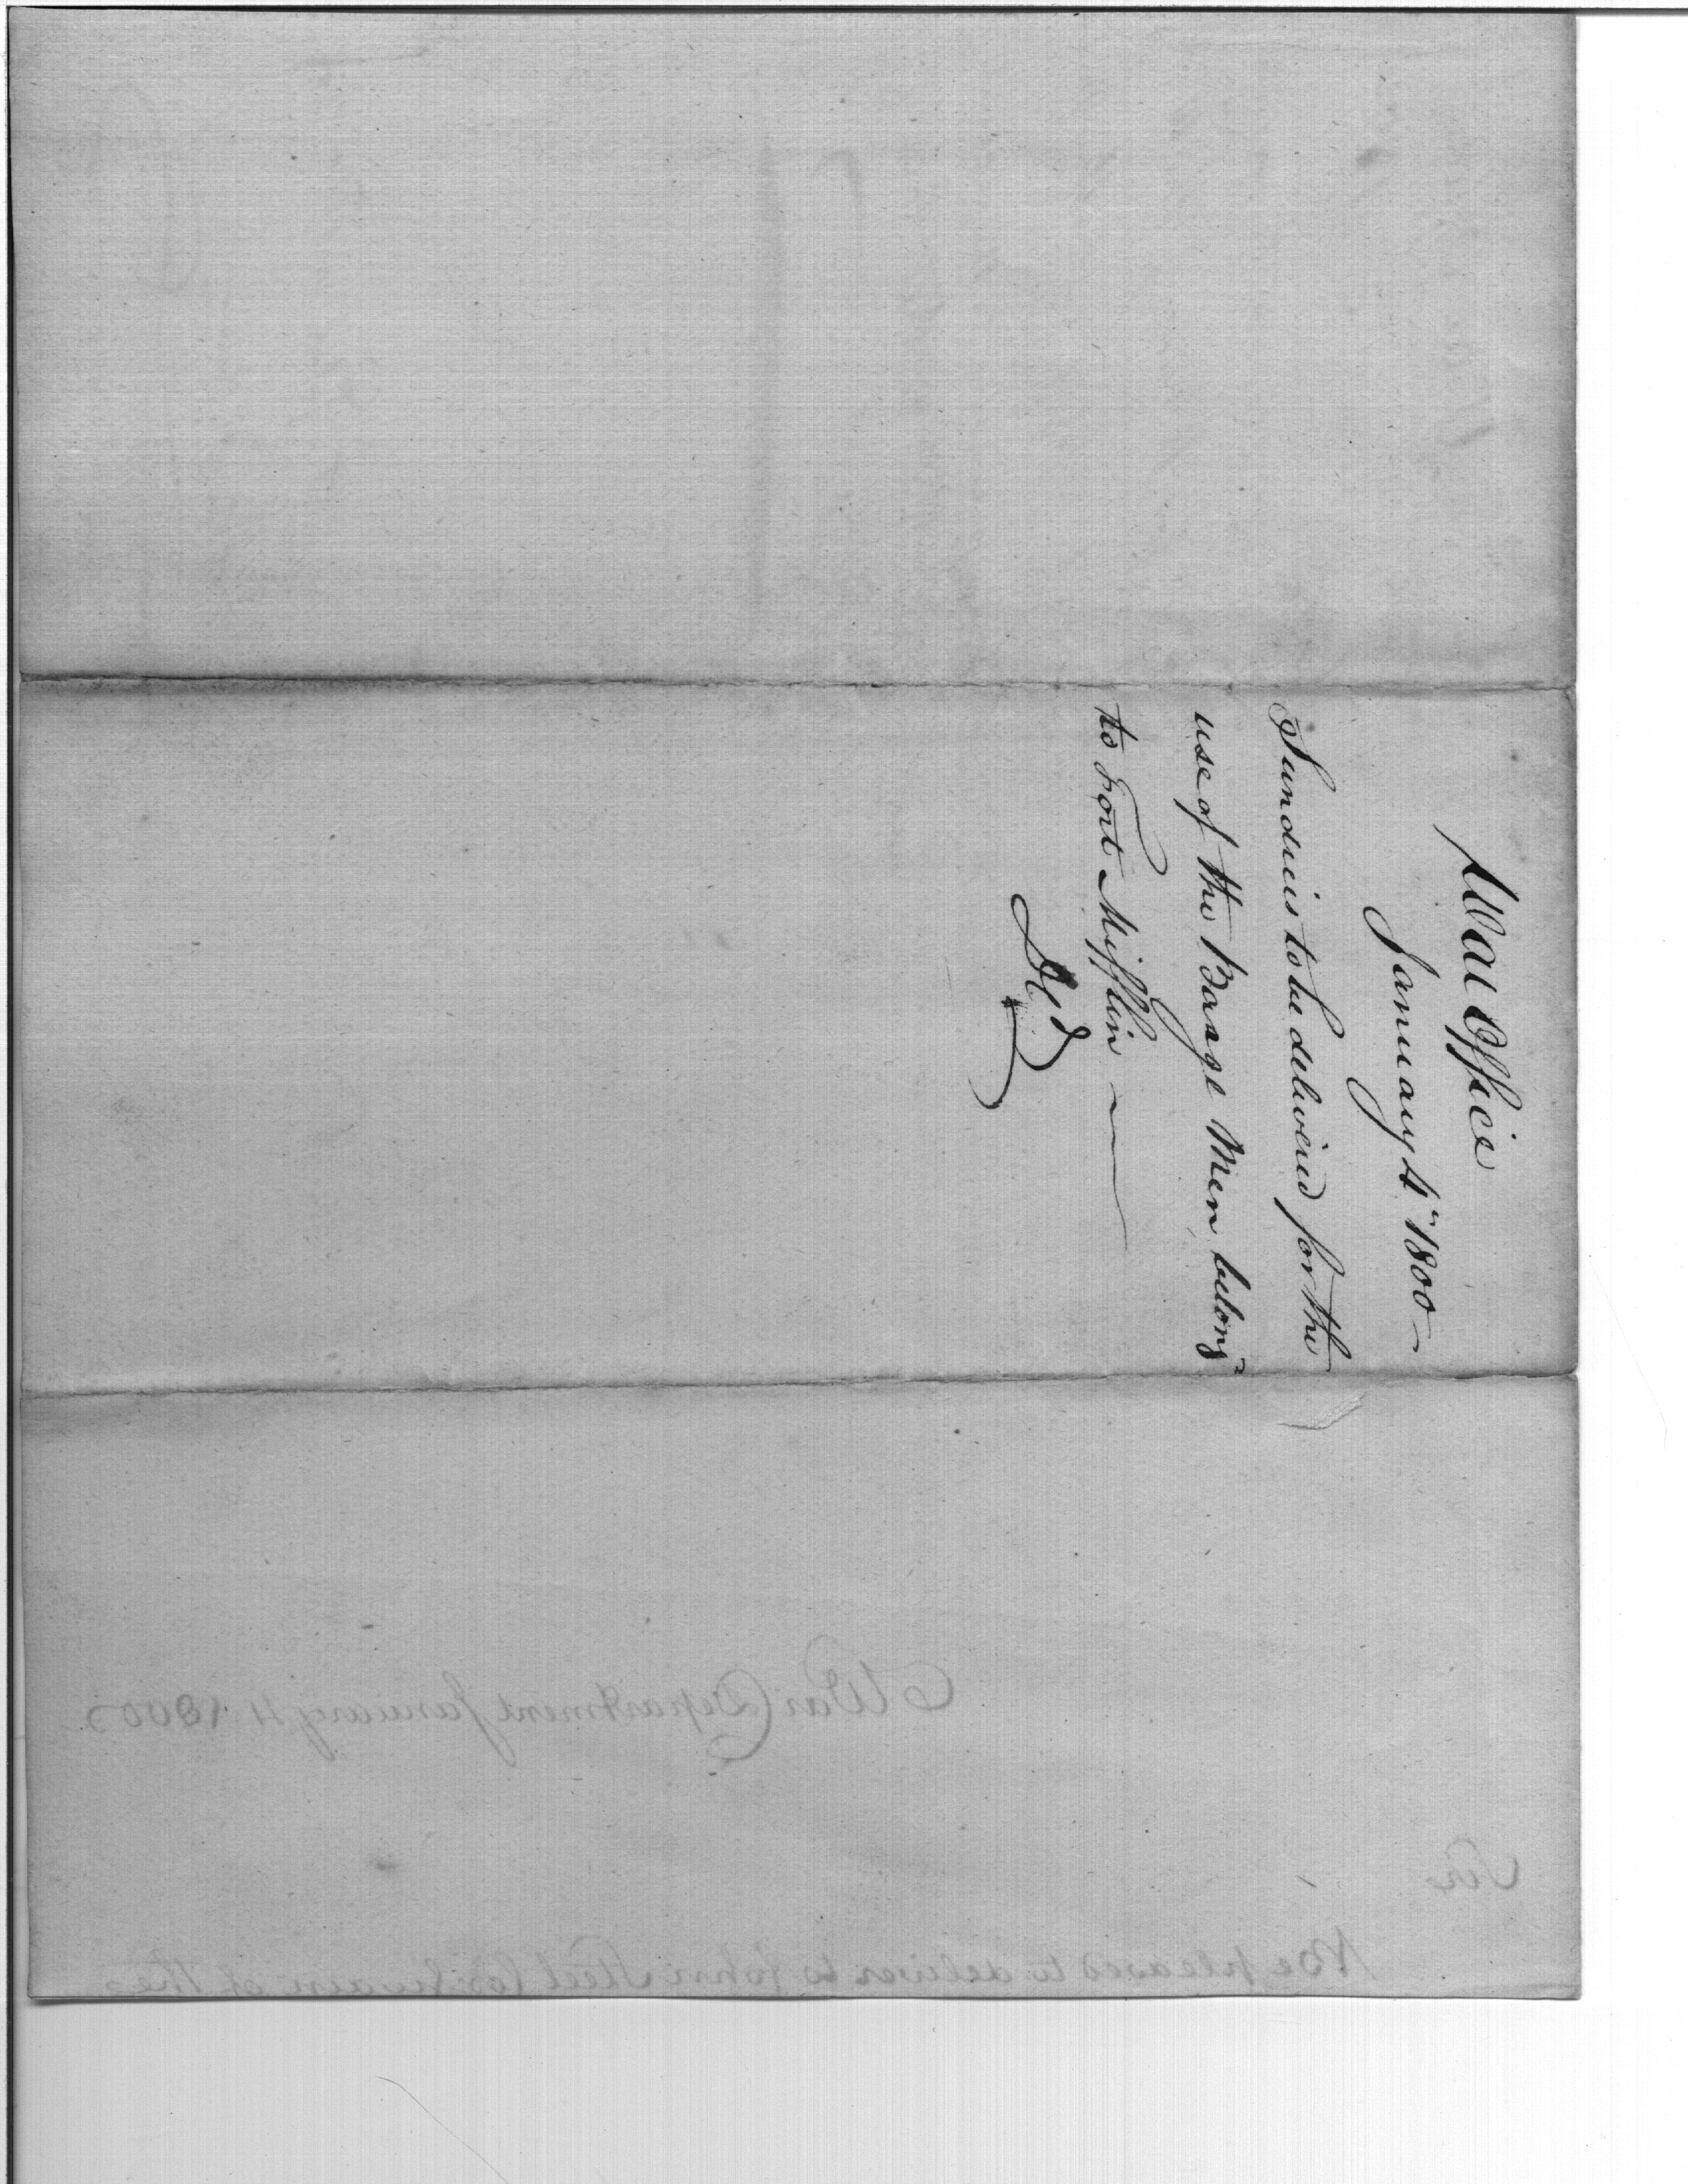 War Office
January 4th 1800
Sundries to be delivered for the
use of the Barge Men belong
to Fort Mifflin
War Department January 4 1800
Sir
Be pleased to deliver to John Steel Coxswain of the